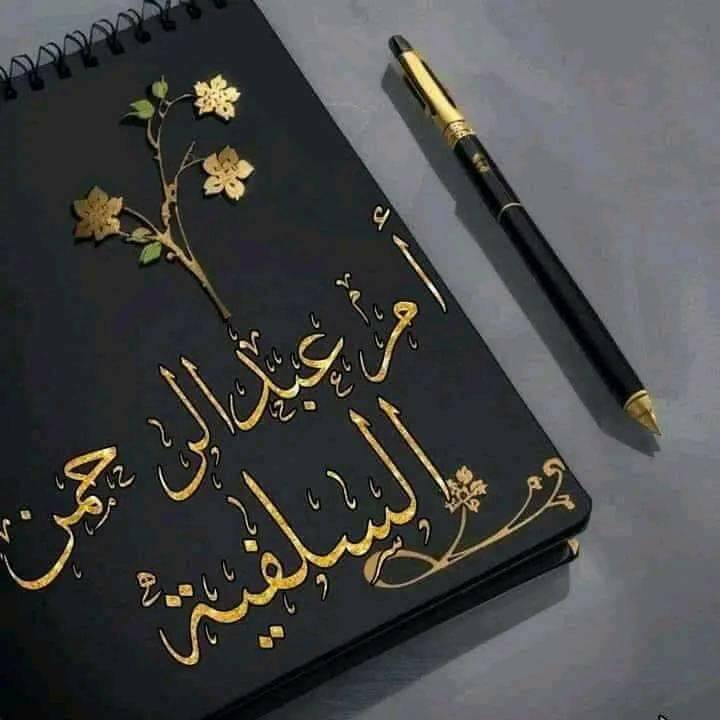 أم عبد الرحمن
السلفية